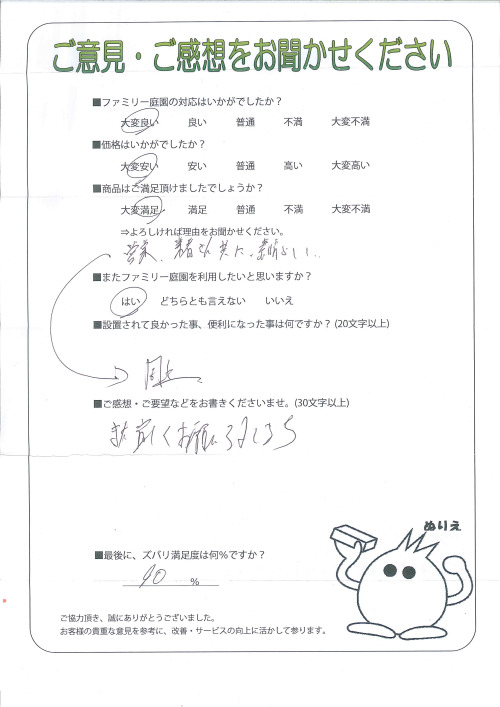 ご意見・ご感想をお聞かせください
■ファミリー庭園の対応はいかがでしたか？
大変良い 良い 普通 不満 大変不満
■価格はいかがでしたか？
大変安い 安い 普通 高い 大変高い
■商品はご満足頂けましたでしょうか？
大変満足 満足 普通 不満 大変不満
⇒よろしければ理由をお聞かせください。
■またファミリー庭園を利用したいと思いますか？
はい どちらとも言えない いいえ
■設置されて良かった事、便利になった事は何ですか？(20文字以上)
同上
■ご感想・ご要望などをお書きくださいませ。(30文字以上)
また宜しくお願いします
ぬりえ
■最後に、ズバリ満足度は何％ですか？
90 %
ご協力頂き、誠にありがとうございました。
お客様の貴重な意見を参考に、改善・サービスの向上に活かして参ります。